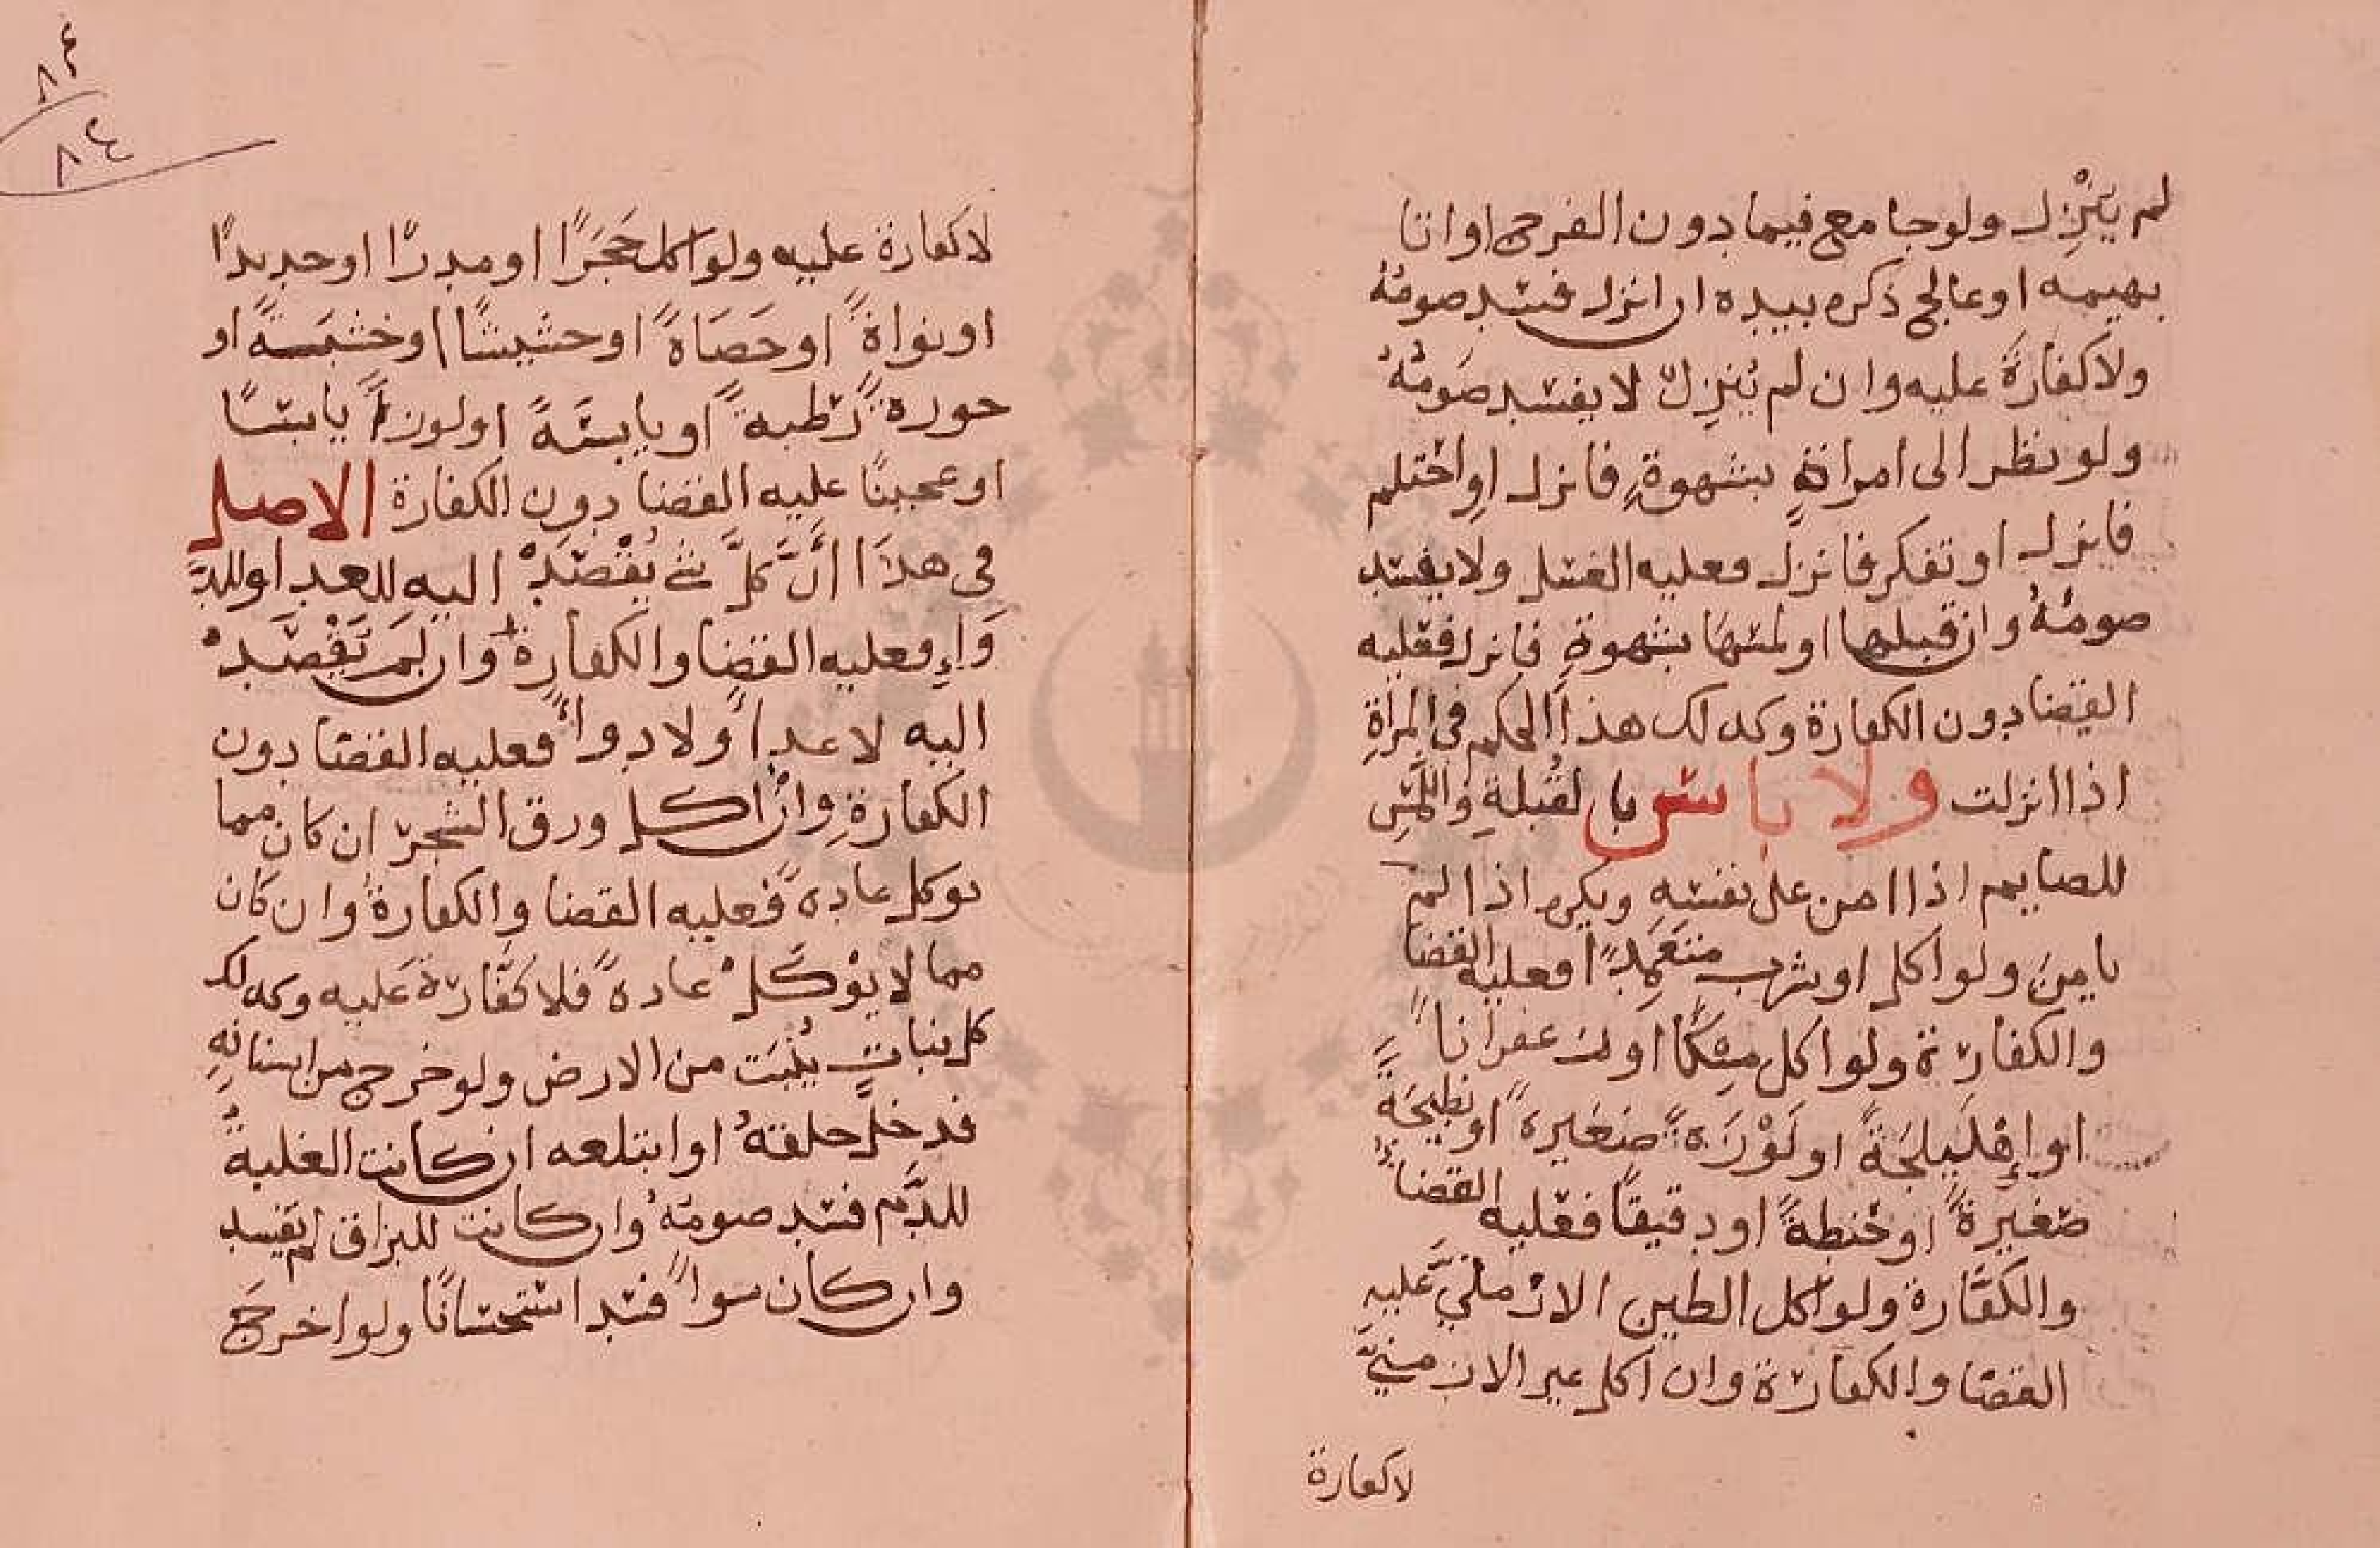 لم يُنْزِل ولو جامع فيما دون الفرج او اتا
بهيمه او عالج ذكره بيده ان انزل فسد صومُهُ
ولا كفارةَ عليه وان لم يُنزِل لا يفسد صَومُهُ
ولو نظر الى امراة بشهوةٍ فانزل او احتلم
فانزل او تفكر فانزل فعليه الغسل ولا يفسد
صومُهُ وان قبلها او لمسَها بشهوةٍ فانزل فعليه
القضا دون الكفارة وكدلك هذا الحكم في المراةِ
اذا انزلت ولا باس بالقُبلةِ واللَّمسِ
للصايم اذا امن على نفسه ويكره اذا لم
يامن ولو اكل او شرب متعَمِداً فعليه القضا
والكفارة ولو اكل مِسكًا او زعفرانا
او اِهْلِيلجَةً او لَوْزَةً صغيرةً او بطيخَةً
صغيرةً او حنطةً او دقيقًا فعليه القضا
والكفَّارة ولو اكل الطين الارمنيَّ عليه
القضا والكفارة وان اكل غير الارمنيَّ
لا كفارة
٨٤
٨٤
لا كفارة عليه ولو اكل حَجَرًا او مدرًا او حديدًا
او نواةً او حَصَاةً او حشيشًا او خشبَةً او
جوزةً رطبةً او يابسَةً او لوزاً يابسًا
او عجينًا عليه القضا دون الكفارة الاصل
في هذَا اَنَّ كلَّ شي يُقْصَدُ اليه للغدا اوللدَّ
وَاءِ فعليه القضا والكفارة وان لَمْ يَقْصَدْ
اليه لا غداً ولا دواً فعليه القضا دون
الكفارةِ وان اكل ورق الشجر ان كان مما
يوكل عادةً فعليه القضا والكفارةُ وان كان
مما لا يوْكَلُ عادةً فلا كفَّارةَ عَليه وكدلك
كل نباتٍ يُنبَت من الارض ولو خرج من اسنانهِ
فدخل حلقَهُ او ابتلعه ان كانت الغلبةُ
للدَّم فسد صومُهُ وان كانت للبزاق لم يفسد
وان كان سواً فسد استحسانًا ولو اخرجَ